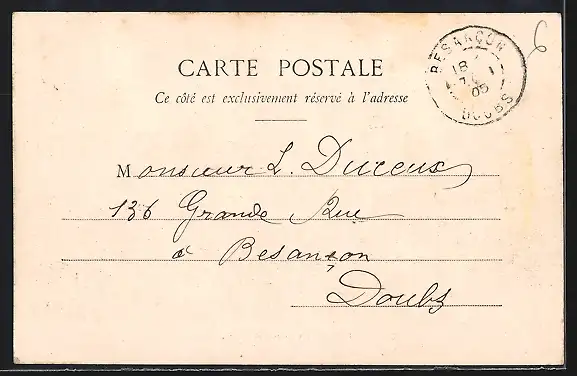 CARTE POSTALE
Ce côté est exclusivement réservé à l'adresse
BESANÇON
18
05
DOUBS
6
Monsieur L.
136 Grande Rue
à Besançon
Doubs